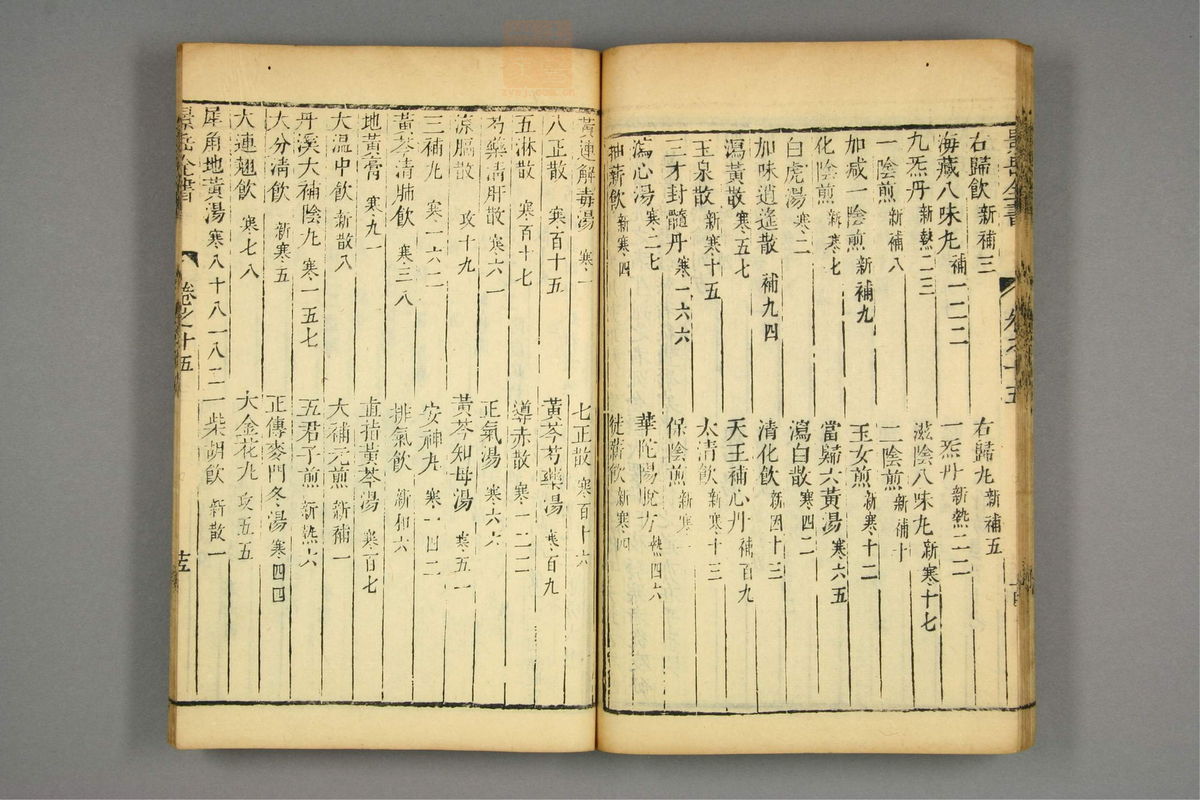 景岳全書 卷之十五
右歸飲 新補三 右歸丸 新補五
海藏八味丸 補一二二 一炁丹 新熱二二
九炁丹 新熱二三 滋陰八味丸 新寒十七
一陰煎 新補八 二陰煎 新補十
加減一陰煎 新補九 玉女煎 新寒十二
化陰煎 新寒七 當歸六黃湯 寒六五
白虎湯 寒二 瀉白散 寒四二
加味逍遙散 補九四 清化飲 新因十三
瀉黃散 寒五七 天王補心丹 補百九
玉泉散 新寒十五 太清飲 新寒十三
三才封髓丹 寒一六六 保陰煎 新寒一
瀉心湯 寒二七 華陀陽脫方 熱四六
抽薪飲 新寒四 徙薪飲 新寒四
黃連解毒湯 寒一 七正散 寒百十六
八正散 寒百十五 黃芩芍藥湯 寒百九
五淋散 寒百十七 導赤散 寒一二二
芍藥清肝散 寒六一 正氣湯 寒六六
涼膈散 攻十九 黃芩知母湯 寒五一
三補丸 寒一六二 安神丸 寒一四二
黃芩清肺飲 寒三八 排氣飲 新和六
地黃膏 寒九一 直指黃芩湯 寒百七
大溫中飲 新散八 大補元煎 新補一
丹溪大補陰丸 寒一五七 五君子煎 新熱六
大分清飲 新寒五 正傳麥門冬湯 寒四四
大連翹飲 寒七八 大金花丸 攻五五
犀角地黃湯 寒八十八一八二 柴胡飲 新散一
景岳全書 卷之十五 十五